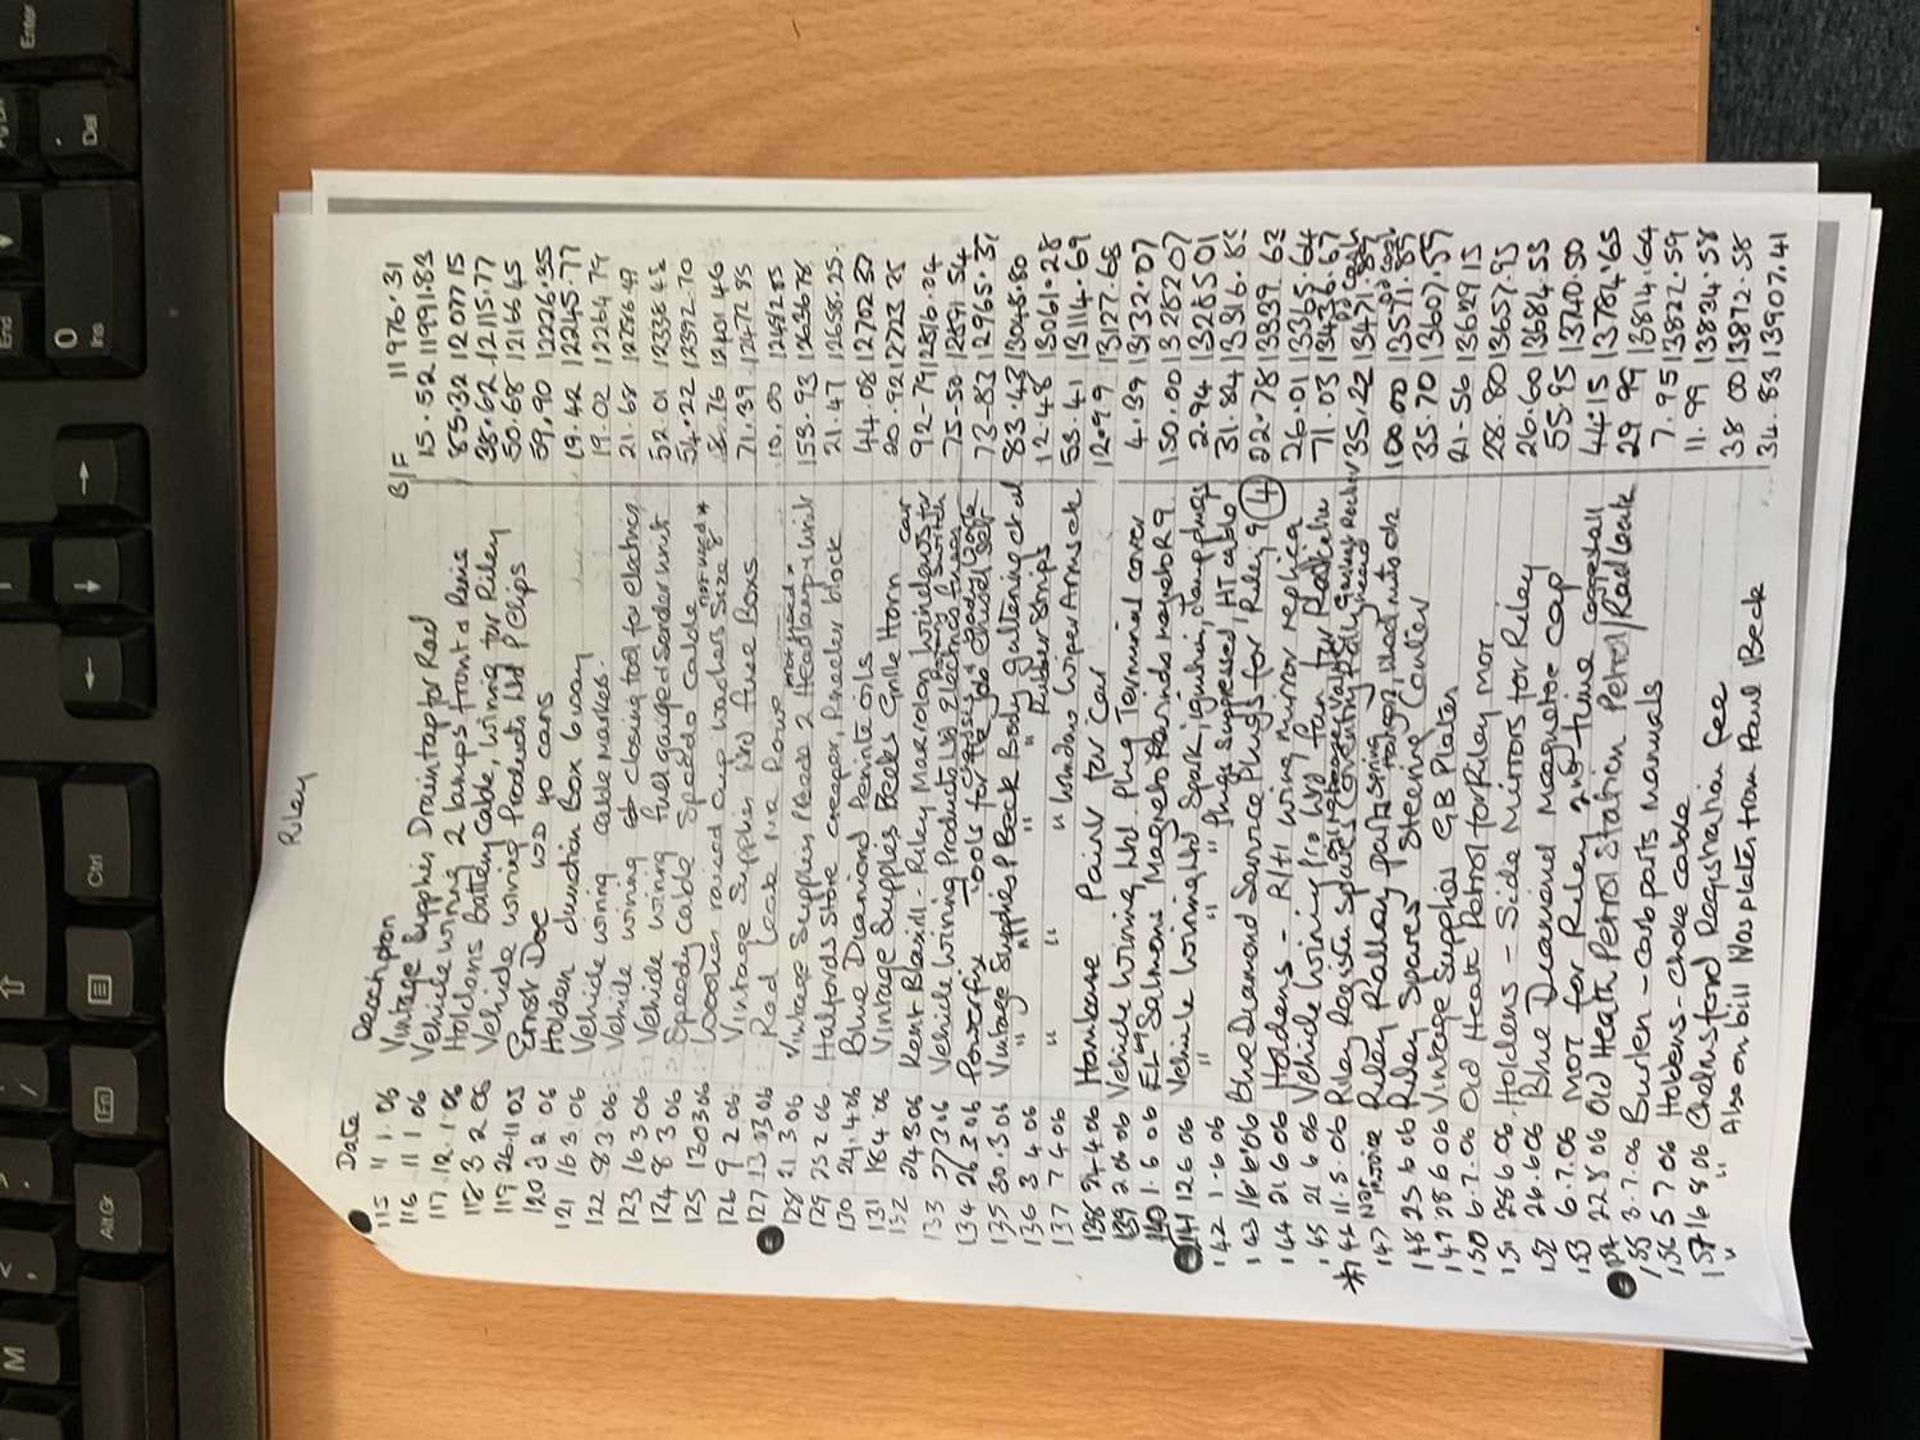 Riley
Date Description B/F 11976.31
115 11 1.06 Vintage Supplies Drain tap for Rad 15.52 11991.83
116 11 1 06 Vehicle wiring 2 lamps front & Rear 85.32 12077 15
117 12.1.06 Holdens Battery Cable, wiring for Riley 38.62 12115.77
118 3 2 06 Vehicle wiring Products Ltd P Clips 50.68 12166 45
119 26.11 05 Ernst Doe WD 40 cans 59.90 12226.35
120 2 2 06 Holden Junction Box 6 way 19.42 12245.77
121 16 3 06 Vehicle wiring cable markers. 19.02 12264 79
122 8 3 06 Vehicle wiring closing tool for electrics 21.68 12286 47
123 16 3 06 Vehicle wiring fuel gauge & Sender unit 52.01 12338 48
124 8 3 06 Speedy Cable Speedo Cable 54.22 12392.70
125 13 03 06 Woolies raised cup washers Size 8 *not used* 8.76 12401 46
126 9 2 06 Vintage Supplies Ltd fuse Boxs 71.39 12472 85
127 13.03 06 Rad Leak Iva Rowe 10.00 12482 85
128 21 3 06 Vintage Supplies Beade 2 Headlamps *not used* 153.93 12636 78
129 25 2 06 Halfords Store creeper, Kneeler block 21.47 12658.25
130 24.4 06 Blue Diamond Penrite oils 44.08 12702 33
131 18 4 06 Vintage Supplies Beeks Grille Horn 20.92 12723 25
132 24 3 06 Kent Blaxill - Riley Maroon car 92-79 12816.04
133 27 3 06 Vehicle Wiring Products Ltd 75-50 12891 54
134 26 3 06 Powerfix Tools for the job 73-83 12965.37
135 30.3 06 Vintage Supplies Beck Body guttering et al 83.43 13048.80
136 3 4 06 " " " Rubber Strips 12.48 13061.28
137 7 4 06 " " " Windows Wiper Arms ck 53.41 13114.69
138 24 4 06 Homebase Paint for Car 12.99 13127.68
139 2 06 06 Vehicle Wiring Ltd Plug Terminal cover 4.39 13132.07
140 1.6 06 F.L. Salmons Magneto Rewinds Magneto R9 150.00 13282 07
141 12 6 06 Vehicle Wiring Ltd Spark, ignition, damp plugs 2.94 13285 01
142 1.6 06 " " " Plugs Suppressed, HT cable 31.84 13316.85
143 16 6 06 Blue Diamond Service Plugs for Riley 9 (4) 22.78 13339.63
144 21 6 06 Holdens - R/H wing mirror replica 26.01 13365.64
145 21 6 06 Vehicle wiring Pro Ltd fan for Radiator 71.03 13436.67
*146 11.5.06 Riley Register spares Coventry 35.22 13471.89
147 Not Invoice Riley Rallay parts 100.00 13571.89
148 25 6 06 Riley Spares Steering Coulter 35.70 13607.59
149 28 6 06 Vintage Supplies GB Plates 21.56 13629 15
150 6.7.06 Old Heath Petrol for Riley MOT 28.80 13657.95
151 28 6.06 Holdens - Side Mirrors for Riley 26.60 13684.55
152 26.6 06 Blue Diamond Magnetoe Cap 55.95 13740.50
153 6.7.06 MOT for Riley 2nd time Coggeshall 44.15 13784.65
154 22 8 06 Old Heath Petrol Station Petrol/Rad Leak 29 99 13814.64
155 3.7.06 Burlen - carb parts manuals 7.95 13822.59
156 5 7 06 Holdens - Choke cable 11.99 13834.58
157 16 8 06 Chelmsford Registration fee 38 00 13872.58
" " Also on bill Nos plates from Paul Beck 34.83 13907.41
Enter
Del
End
0
Ins
Ctrl
Fn
Alt Gr
M